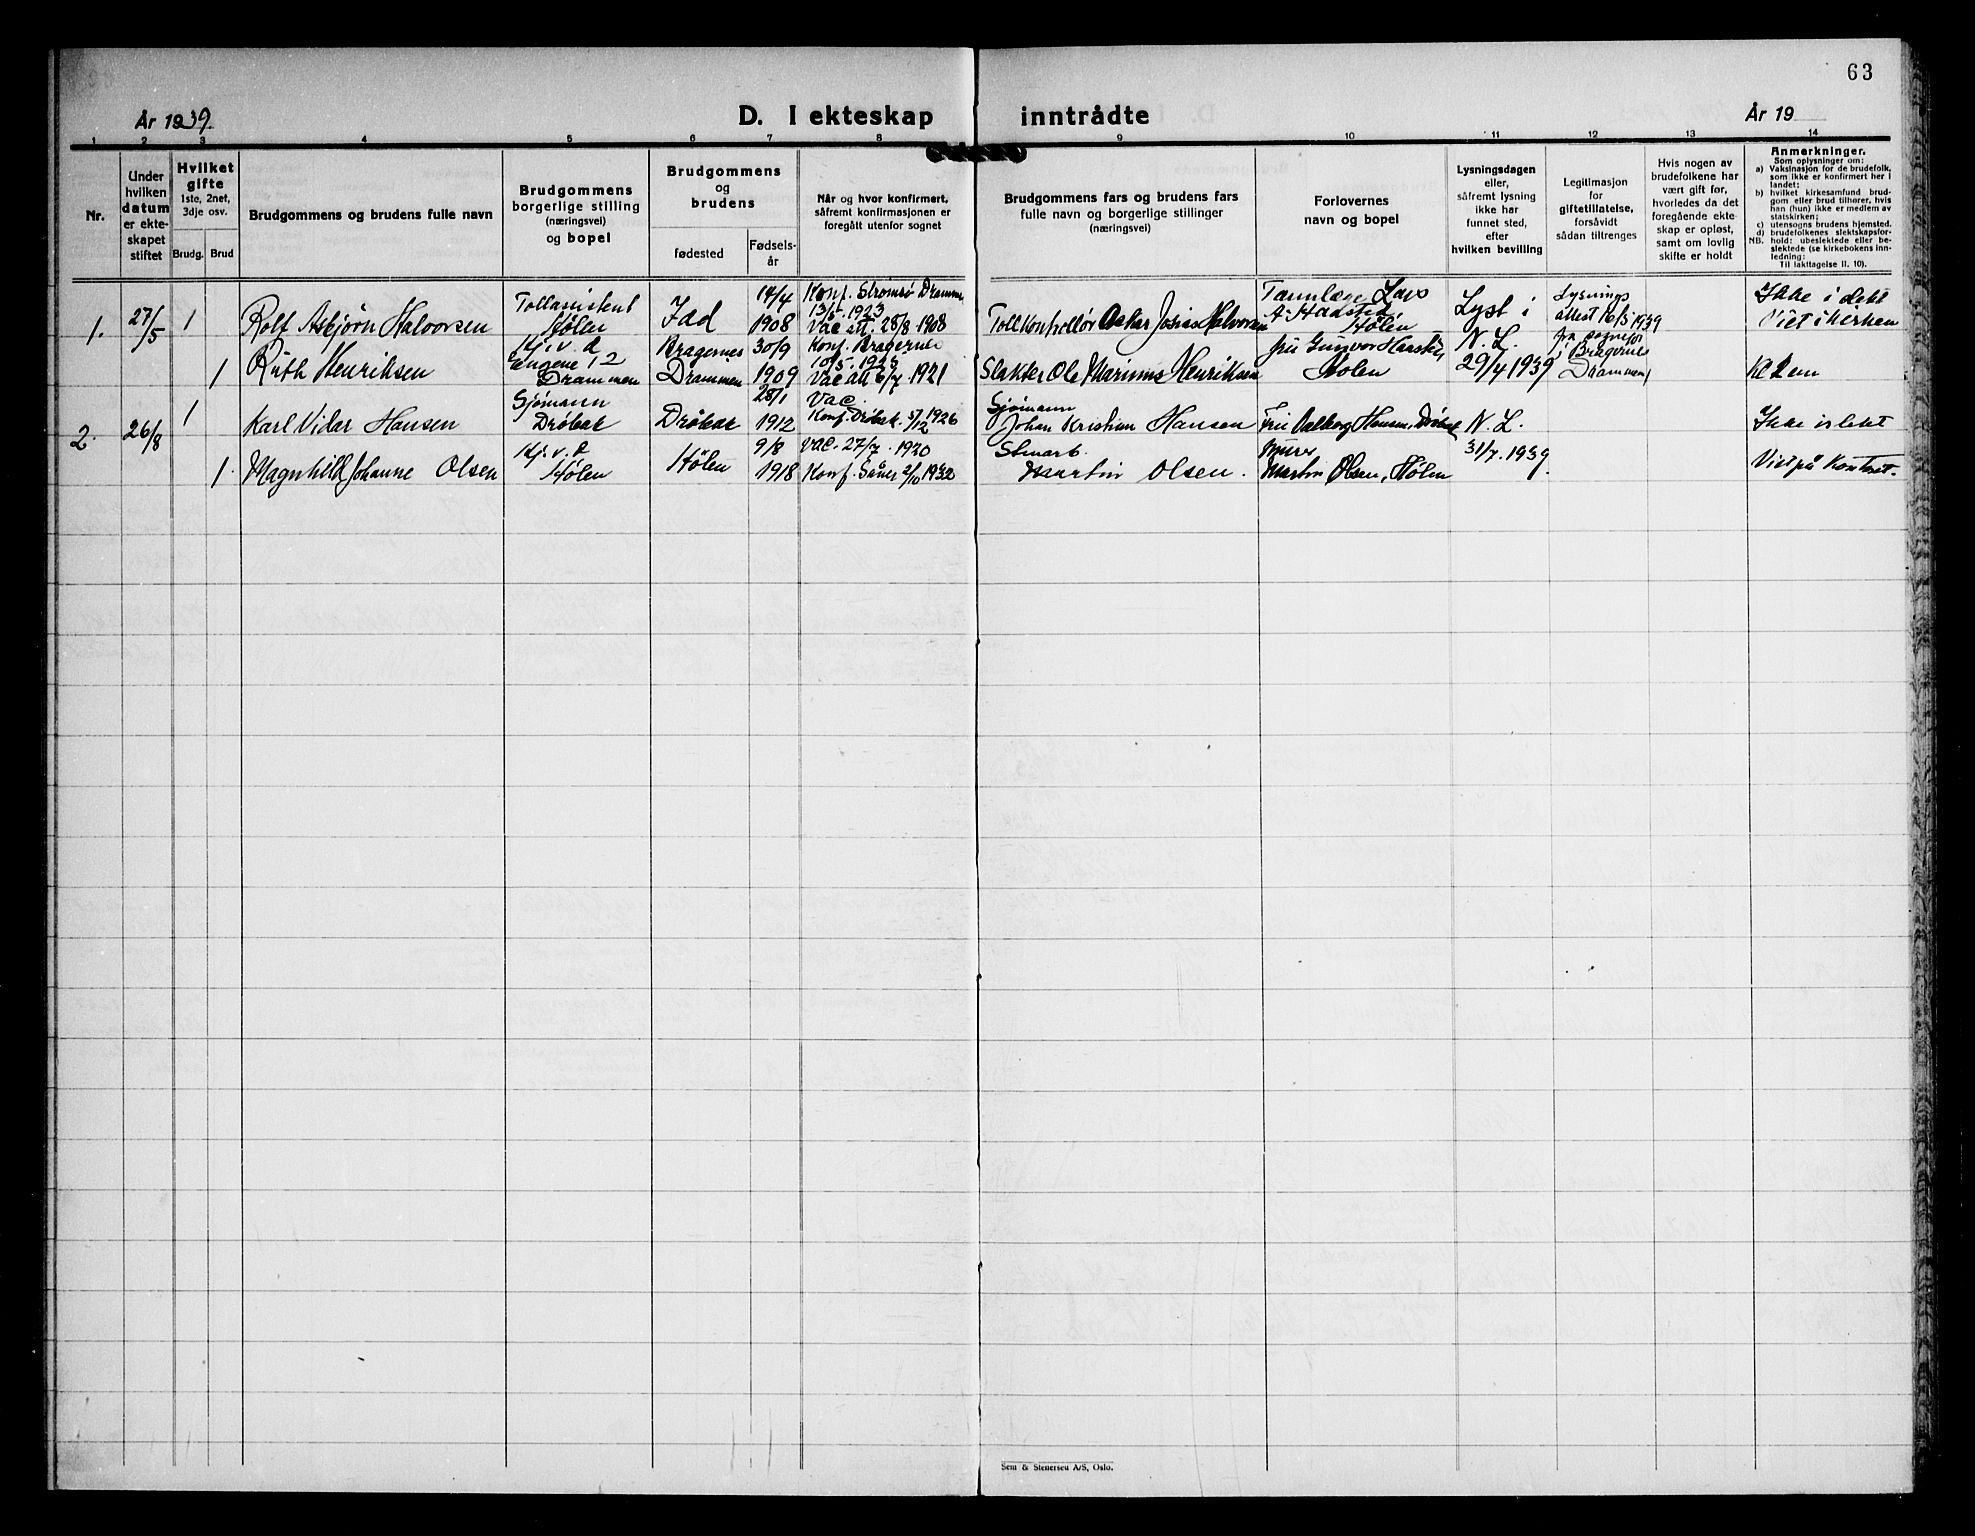 63
År 1939.
D. I ekteskap inntrådte
År 19
1 2 3 4 5 6 7 8 9 10 11 12 13 14
Nr.
Under
hvilken
datum
er ekte-
skapet
stiftet
Hvilket
gifte
1ste, 2net,
3dje osv.
Brudg. Brud
Brudgommens og brudens fulle navn
Brudgommens
borgerlige stilling
(næringsvei)
og bopel
Brudgommens
og
brudens
fødested
Fødsels-
år
Når og hvor konfirmert,
såfremt konfirmasjonen er
foregått utenfor sognet
Brudgommens fars og brudens fars
fulle navn og borgerlige stillinger
(næringsvei)
Forlovernes
navn og bopel
Lysningsdagen
eller,
såfremt lysning
ikke har
funnet sted,
efter
hvilken bevilling
Legitimasjon
for
giftetillatelse,
forsåvidt
sådan tiltrenges
Hvis nogen av
brudefolkene har
vært gift før,
hvorledes da det
foregående ekte-
skap er opløst,
samt om lovlig
skifte er holdt
Anmerkninger.
Som oplysninger om:
a) Vaksinasjon for de brudefolk,
som ikke er konfirmert her i
landet;
b) hvilket kirkesamfund brud-
gom eller brud tilhører, hvis
han (hun) ikke er medlem av
statskirken;
c) utensogns brudens hjemsted.
d) brudefolkenes slektskapsfor-
NB. hold: ubeslektede eller be-
slektede (se kirkebokens inn-
ledning:
Til iakttagelse II. 10).
1.
27/5
1
Rolf Asbjørn Halvorsen
Tollassistent
Hølen
Idd
14/4
1908
Konf. Strømsø Drammen
13/5 1923
Vac att. 28/8 1908
Tollkontrollør Oskar Josias Halvorsen
Tannlæge Lars
A. Haastad
Hølen
Lyst i
N. L.
29/4 1939
Lysnings
attest 16/5 1939
fra sognepr
i Bragernes
Drammen
Ikke i slekt
Viet i kirken
1
Ruth Henriksen
Kj. v. d
Engene 12
Drammen
Bragernes
Drammen
30/9
1909
Konf. Bragernes
10/5 1923
Vac att 6/7 1921
Slakter Ole Marinius Henriksen
fru Gunvor Haastad
Hølen
2.
26/8
1
Karl Vidar Hansen
Sjømann
Drøbak
Drøbak
28/1
1912
Vac.
Konf. Drøbak 5/12 1926
Sjømann
Johan Kristian Hansen
Fru Valborg Hansen, Drøbak
N. L.
31/7. 1939.
Ikke i slekt
1.
Magnhild Johanne Olsen
Kj. v. d
Hølen
Hølen
9/8
1918
Vac. 27/7. 1920
Konf. Såner 2/10 1932
Stenarb.
Martin Olsen.
Murer
Martin Olsen, Hølen
Viet på Kontoret.
Sem & Stenersen A/S, Oslo.